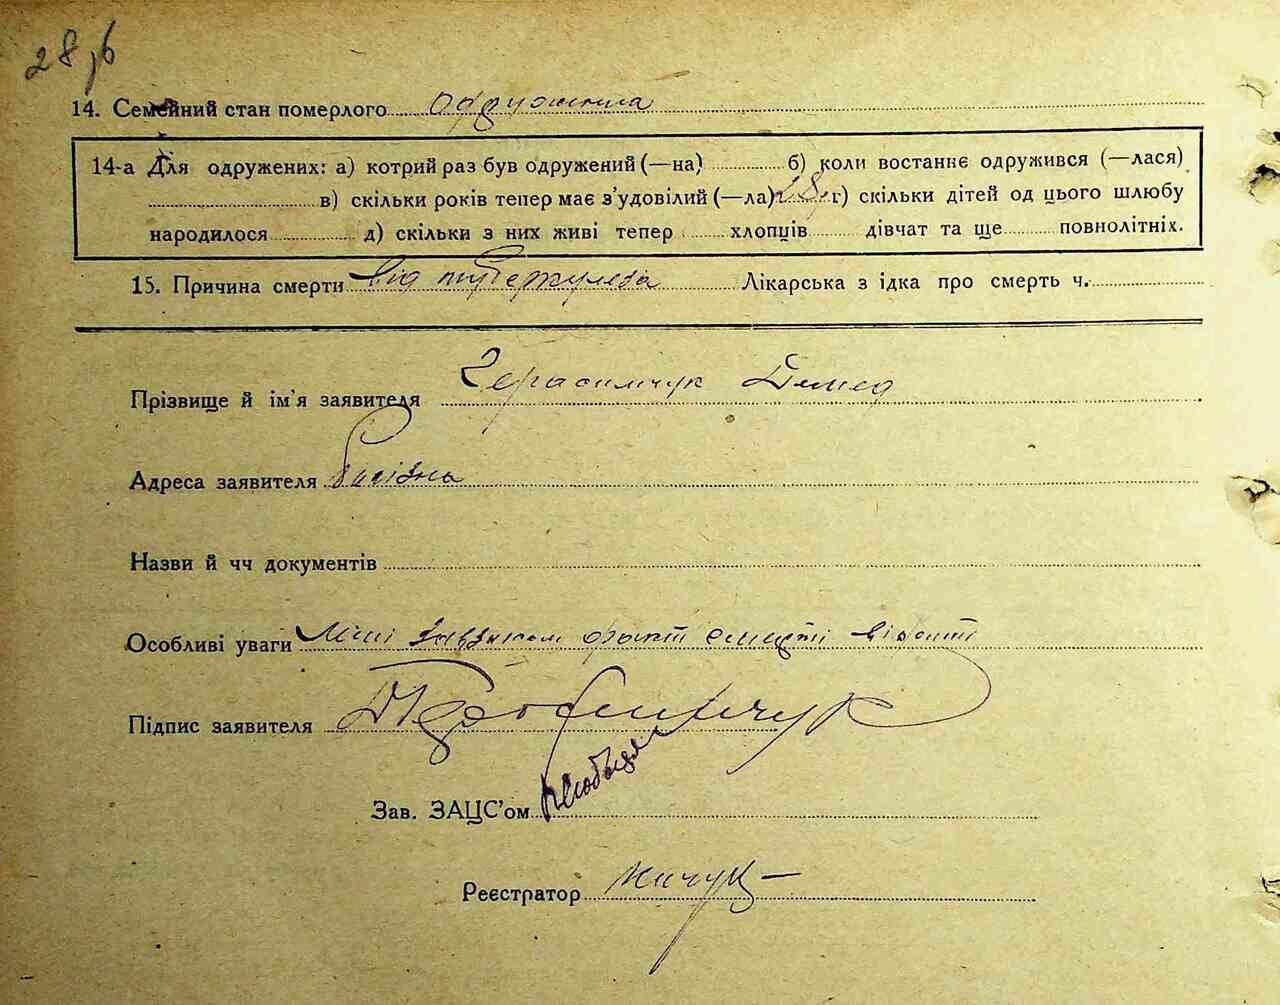 28
14. Семейний стан померлого одружена
14-а Для одружених: а) котрий раз був одружений (—на) б) коли востаннє одружився (—лася)
в) скільки років тепер має з'удовілий (—ла) 28 г) скільки дітей од цього шлюбу
народилося д) скільки з них живі тепер хлопців дівчат та ще повнолітніх.
15. Причина смерти від туберкульоза Лікарська з ідка про смерть ч.
Прізвище й ім'я заявителя Герасимчук Демид
Адреса заявителя
Назви й чч документів
Особливі уваги факт смерті
Підпис заявителя
Зав. ЗАЦС'ом
Реєстратор